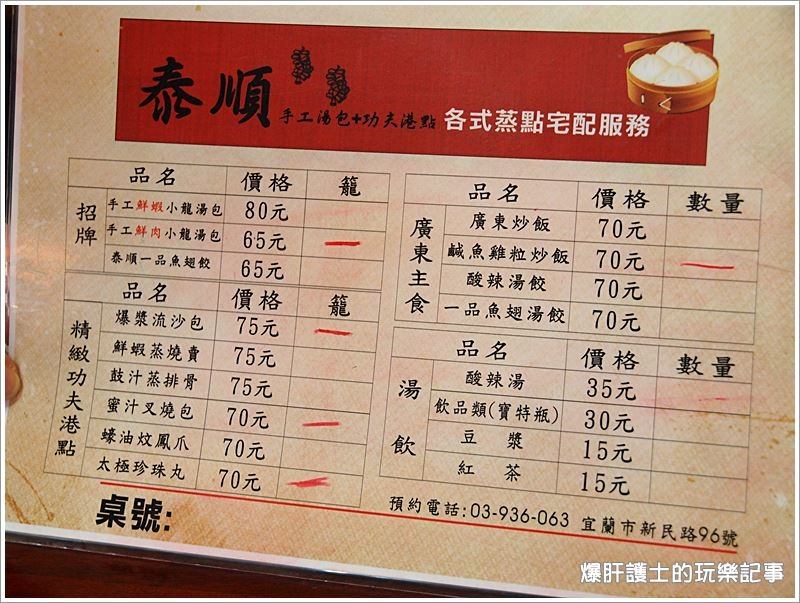 泰順
手工湯包+功夫港點 各式蒸點宅配服務
品名 價格 籠
招牌
手工鮮蝦小龍湯包 80元
手工鮮肉小龍湯包 65元
泰順一品魚翅餃 65元
品名 價格 籠
精緻功夫港點
爆漿流沙包 75元
鮮蝦蒸燒賣 75元
鼓汁蒸排骨 75元
蜜汁叉燒包 70元
蠔油炆鳳爪 70元
太極珍珠丸 70元
品名 價格 數量
廣東主食
廣東炒飯 70元
鹹魚雞粒炒飯 70元
酸辣湯餃 70元
一品魚翅湯餃 70元
品名 價格 數量
湯飲
酸辣湯 35元
飲品類(寶特瓶) 30元
豆漿 15元
紅茶 15元
桌號:
預約電話:03-936-063 宜蘭市新民路96號
爆肝護士的玩樂記事